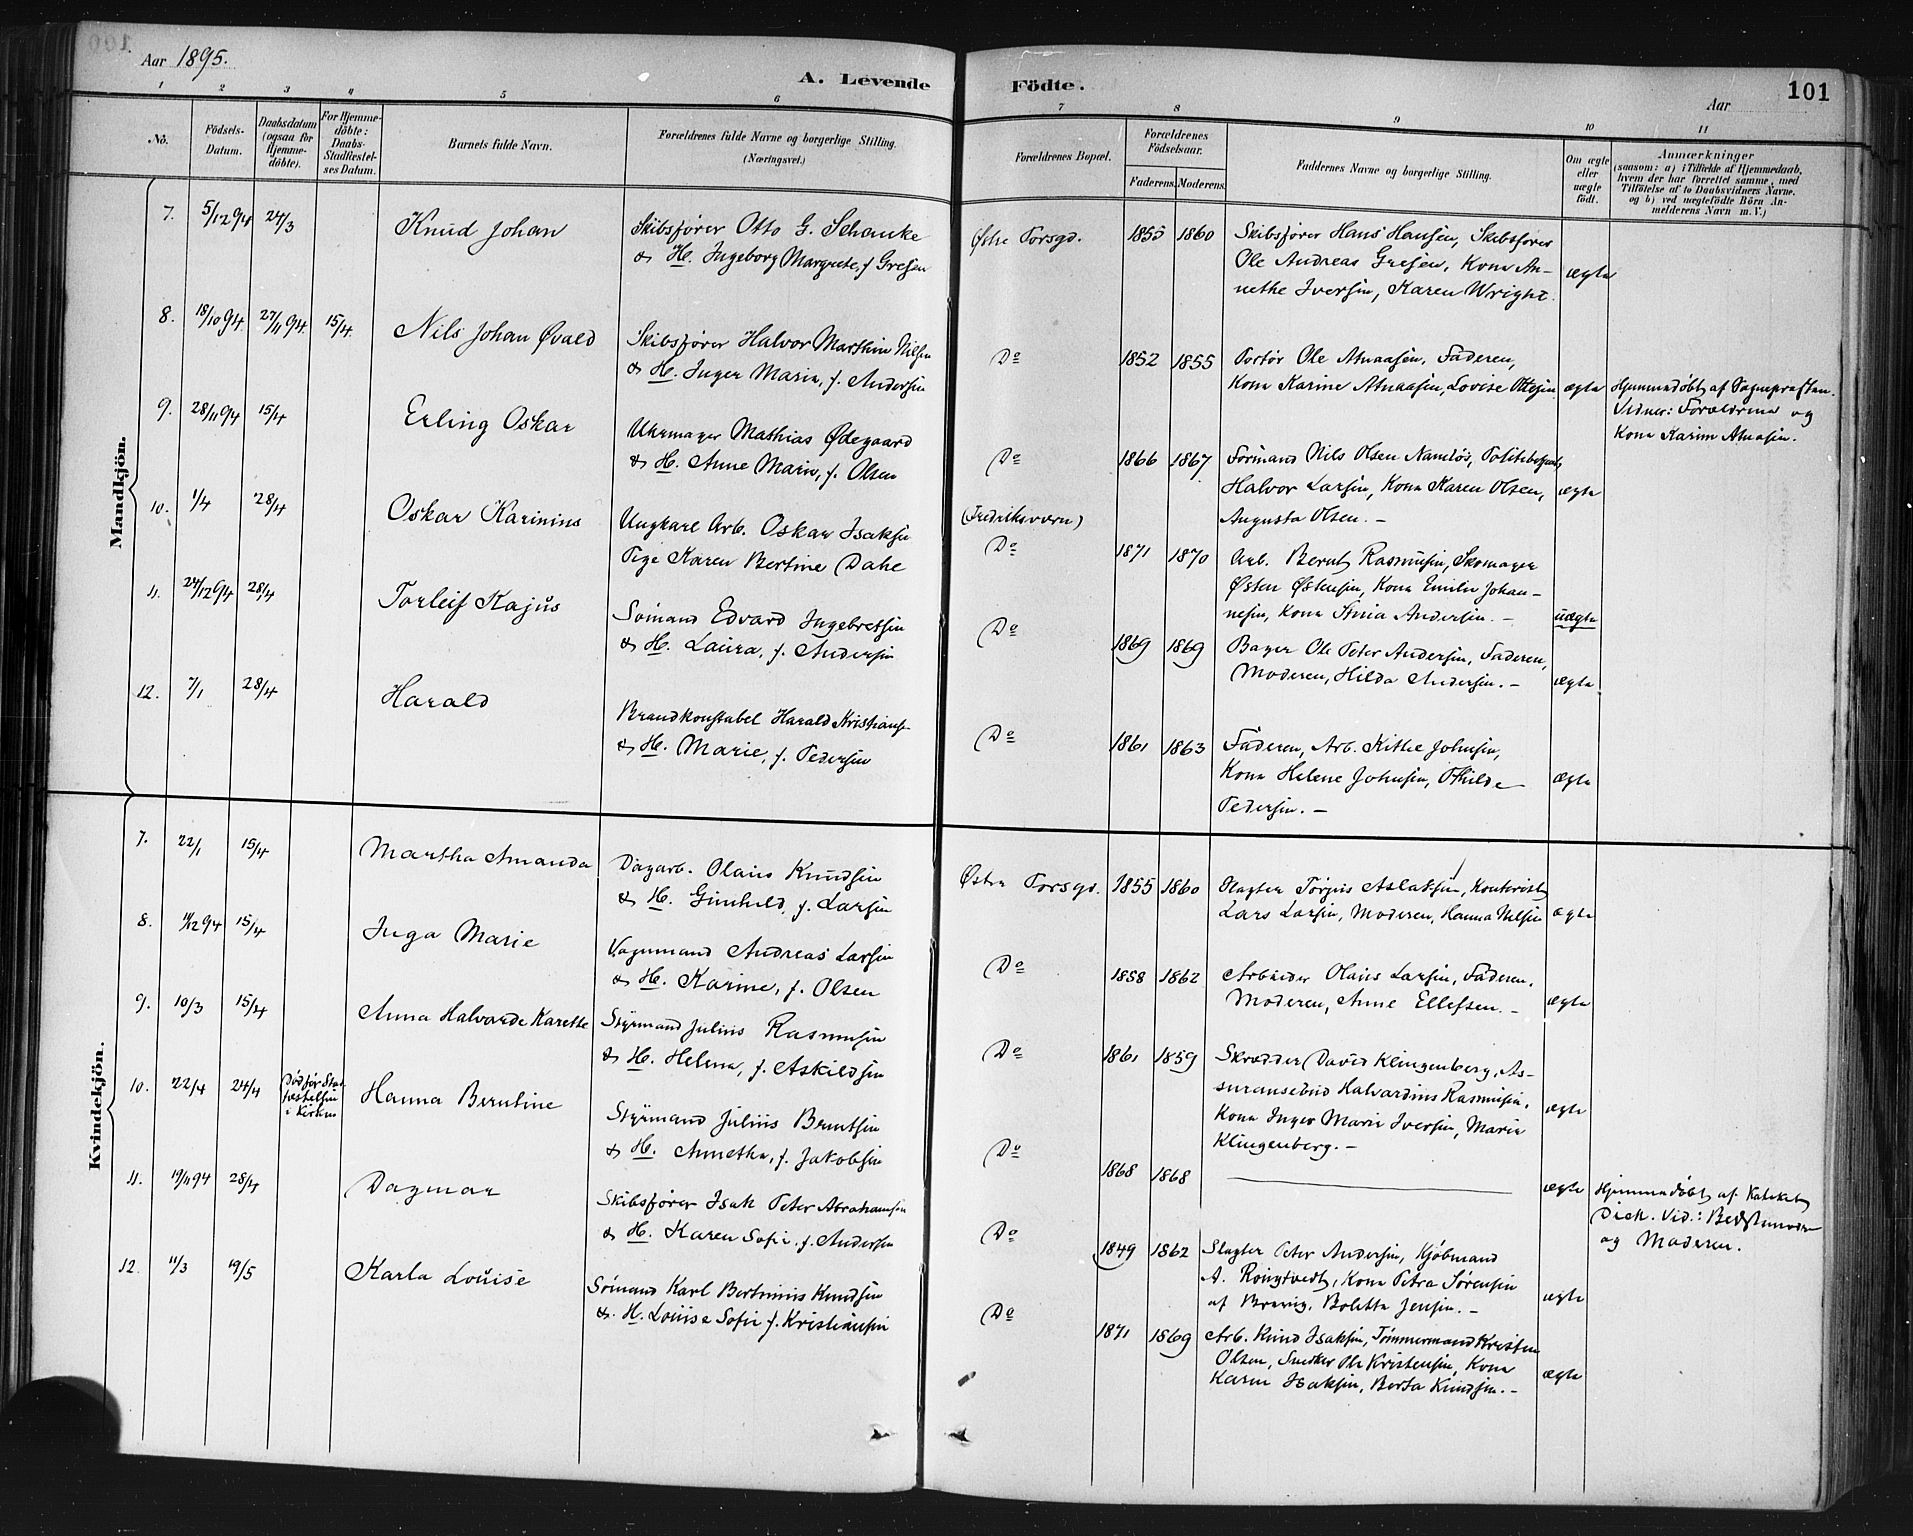 Aar 1895.
A. Levende Födte.
Aar
101
1 2 3 4 5 6 7 8 9 10 11
No.
Födsels-Datum.
Daabsdatum (ogsaa for Hjemme-döbte).
For Hjemme-döbte: Daabs-Stadfæstel-ses Datum.
Barnets fulde Navn.
Forældrenes fulde Navne og borgerlige Stilling. (Næringsvei.)
Forældrenes Bopæl.
Forældrenes Födselsaar.
Faderens. Moderens.
Faddernes Navne og borgerlige Stilling.
Om ægte eller uægte födt.
Anmærkninger
(saasom: a) i Tilfælde af Hjemmedaab,
hvem der har forrettet samme, med
Tilföielse af to Daabsvidners Navne.
og b) ved uægtefödte Börn An-
melderens Navn m. V.)
Mandkjön.
7. 5/12 94 24/3 Knud Johan
Skibsfører Otto G. Schancke
& H. Ingeborg Margrete, f. Gresen
Østre Porsgd. 1855 1860
Skibsfører Hans Hansen, Skibsfører
Ole Andreas Gresen, Kone An-
nethe Iversen, Karen Wright.
ægte
8. 18/10 94. 27/11 94. 15/4. Nils Johan Øvald
Skibsfører Halvor Marthin Nilsen
& H. Inger Marie, f. Andersen
Do 1852 1855
Portør Ole Atnaasen, Faderen,
Kone Karine Atnaasen, Lovise Ottesen
ægte
Hjemmedøbt af Sognepræsten.
Vidner: Forældrene og
Kone Karine Atnasen.
9. 28/11 94 15/4 Erling Oskar
Uhrmager Mathias Ødegaard
& H. Anne Marie, f. Olsen
Do 1866 1867
Formand Nils Olsen Namløs, Politibetjent
Halvor Larsen, Kone Karen Olsen,
Augusta Olsen. -
ægte
10. 1/4 28/4 Oskar Karinius
Ungkarl Arb. Oskar Isaksen
Pige Karen Bertine Dahl
(Fredriksværn)
Do 1871 1870
Arb. Bernt Rasmusen, Skomager
Østen Østensen, Kone Emilie Johan-
nesen, Kone Stina Andersen. -
uægte
11. 24/12 94 28/4 Torleif Kajus
Sømand Edvard Ingebretsen
& H. Laura, f. Andersen
Do 1869 1869
Bager Ole Peter Andersen, Faderen,
Moderen, Hilda Andersen. -
ægte
12. 7/1 28/4 Harald
Brandkonstabel Harald Kristians
& H. Marie, f. Pedersen
Do 1861 1863
Faderen, Arb. Kittil Johnsen,
Kone Helene Johnsen, Thilde
Pedersen. -
ægte
Kvindekjön.
7. 22/1 15/4 Martha Amanda
Dagarb. Olaus Knudsen
& H. Gunhild, f. Larsen
Østre Porsgd. 1855 1860
Slagter Jørgis Aslaksen, Kontorist
Lars Larsen, Moderen, Hanna Nilsen
ægte
8. 11/12 94 15/4 Inga Marie
Vognmand Andreas Larsen
& H. Karine, f. Olsen
Do 1858 1862
Arbeider Olaus Larsen, Faderen,
Moderen, Anne Ellefsen. -
ægte
9. 10/3 15/4 Anna Halvarde Karette
Styrmand Julius Rasmusen
& H. Helena, f. Askildsen
Do 1861 1859
Skrædder David Klingenberg, As-
suransebud Halvardius Rasmusen,
Kone Inger Marie Iversen, Marie
Klingenberg. -
ægte
10. 22/4 24/4 Død før Stad-
fæstelsen
i Kirken
Hanna Berntine
Styrmand Julius Berntsen
& H. Annetha, f. Jakobsen
Do 1868 1868
ægte
Hjemmedøbt af Kateket
Dick. Vid.: Bedstemoder
og Moderen.
11. 19/11 94 28/4 Dagmar
Skibsfører Isak Peter Abrahamsen
& H. Karen Sofie, f. Andersen
Do 1849 1862
Slagter Peter Andersen, Kjøbmand
A. Rongtvedt, Kone Petra Sørensen
af Brevig, Boletta Jensen. -
ægte
12. 11/3 19/5 Karla Louise
Sømand Karl Bertinius Knudsen
& H. Louise Sofie f. Kristiansen
Do 1871 1869
Arb. Knud Isaksen, Tømmermand Kristen
Olsen, Snedker Ole Kristensen, Kone
Karen Isaksen, Berta Knudsen. -
ægte